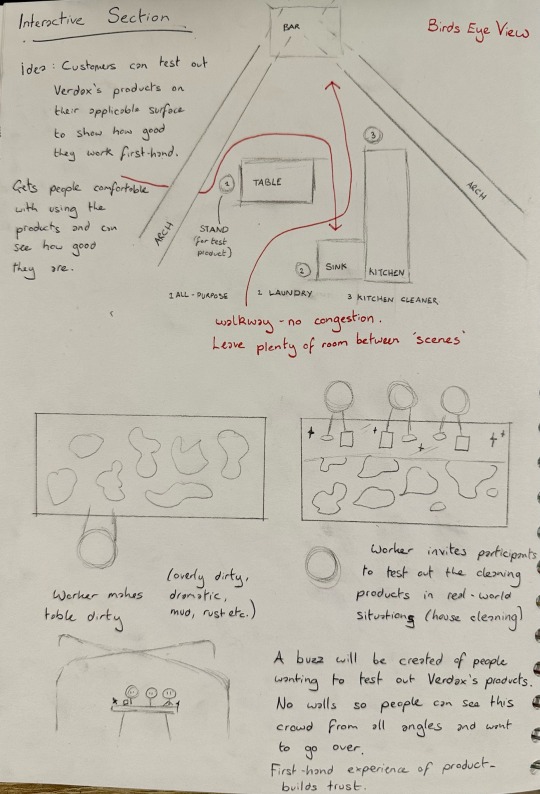 Interactive Section
Birds Eye View
BAR
idea: Customers can test out
Verdox's products on
their applicable surface
to show how good
they work first-hand.
Gets people comfortable
with using the
products and can
see how good
they are.
ARCH
ARCH
1
TABLE
STAND
(for test
product)
3
2
SINK
KITCHEN
1 ALL-PURPOSE 2 LAUNDRY 3 KITCHEN CLEANER
walkway - no congestion.
Leave plenty of room between 'scenes'
Worker makes
table dirty
(overly dirty,
dramatic,
mud, rust etc.)
Worker invites participants
to test out the cleaning
products in real-world
situations (house cleaning)
A buzz will be created of people
wanting to test out Verdox's products.
No walls so people can see this
crowd from all angles and want
to go over.
First-hand experience of product-
builds trust.